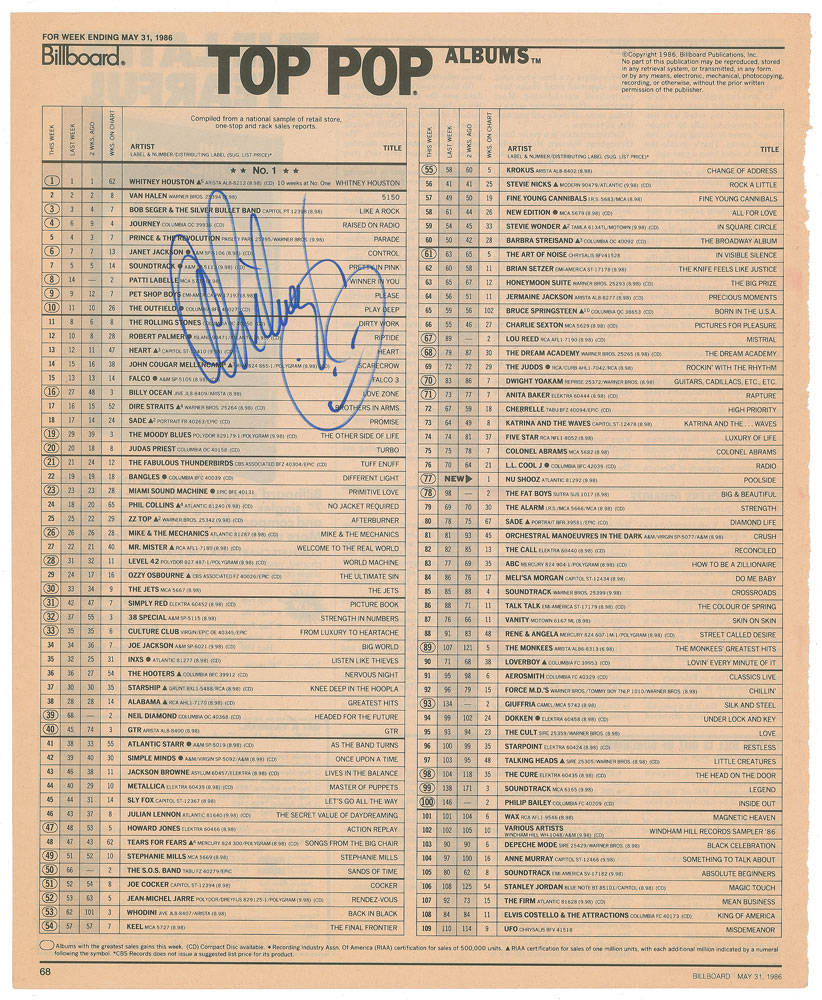 FOR WEEK ENDING MAY 31, 1986
Billboard® TOP POP® ALBUMS™
©Copyright 1986, Billboard Publications, Inc.
No part of this publication may be reproduced, stored
in any retrieval system, or transmitted, in any form
or by any means, electronic, mechanical, photocopying,
recording, or otherwise, without the prior written
permission of the publisher.
Compiled from a national sample of retail store,
one-stop and rack sales reports.
THIS WEEK LAST WEEK 2 WKS. AGO WKS. ON CHART ARTIST TITLE
LABEL & NUMBER/DISTRIBUTING LABEL (SUG. LIST PRICE)*
★★ No. 1 ★★
1 1 1 62 WHITNEY HOUSTON ▲ ARISTA AL8-8212 (8.98) (CD) 10 weeks at No. One WHITNEY HOUSTON
2 2 2 8 VAN HALEN WARNER BROS. 25394 (8.98) 5150
3 3 4 7 BOB SEGER & THE SILVER BULLET BAND CAPITOL PT 12398 (8.98) LIKE A ROCK
4 6 9 4 JOURNEY COLUMBIA OC 39936 (CD) RAISED ON RADIO
5 4 3 7 PRINCE & THE REVOLUTION PAISLEY PARK 25395/WARNER BROS. (9.98) PARADE
6 7 7 13 JANET JACKSON ● A&M SP-5106 (8.98) (CD) CONTROL
7 5 5 14 SOUNDTRACK ● A&M (CD) PRETTY IN PINK
8 14 — 2 PATTI LABELLE MCA WINNER IN YOU
9 9 12 7 PET SHOP BOYS EMI-AMERICA (8.98) PLEASE
10 11 10 26 THE OUTFIELD COLUMBIA BFC 40027 (CD) PLAY DEEP
11 8 6 8 THE ROLLING STONES (CD) DIRTY WORK
12 10 8 28 ROBERT PALMER ● ISLAND (CD) RIPTIDE
13 12 11 47 HEART ▲ CAPITOL (CD) HEART
14 15 16 38 JOHN COUGAR MELLENCAMP ▲ 824 865-1/POLYGRAM (8.98) (CD) SCARECROW
15 13 13 14 FALCO ● A&M SP-5105 (8.98) FALCO 3
16 27 48 3 BILLY OCEAN JIVE JL8-8409/ARISTA (8.98) LOVE ZONE
17 16 15 52 DIRE STRAITS ▲ WARNER BROS. 25264 (8.98) (CD) BROTHERS IN ARMS
18 17 14 24 SADE ▲² PORTRAIT FR 40263/EPIC (CD) PROMISE
19 29 39 3 THE MOODY BLUES POLYDOR 829179 1/POLYGRAM (9.98) (CD) THE OTHER SIDE OF LIFE
20 20 18 8 JUDAS PRIEST COLUMBIA OC 40158 (CD) TURBO
21 21 24 12 THE FABULOUS THUNDERBIRDS CBS ASSOCIATED BFZ 40304/EPIC (CD) TUFF ENUFF
22 19 19 18 BANGLES ● COLUMBIA BFC 40039 (CD) DIFFERENT LIGHT
23 23 23 28 MIAMI SOUND MACHINE ● EPIC BFE 40131 PRIMITIVE LOVE
24 18 20 65 PHIL COLLINS ▲ ATLANTIC 81240 (9.98) (CD) NO JACKET REQUIRED
25 25 22 29 ZZ TOP ▲² WARNER BROS. 25342 (9.98) (CD) AFTERBURNER
26 26 26 28 MIKE & THE MECHANICS ATLANTIC 81287 (8.98) (CD) MIKE & THE MECHANICS
27 22 21 40 MR. MISTER ▲ RCA AFL1-7180 (8.98) (CD) WELCOME TO THE REAL WORLD
28 31 32 11 LEVEL 42 POLYDOR 827 487-1/POLYGRAM (8.98) (CD) WORLD MACHINE
29 24 17 16 OZZY OSBOURNE ▲ CBS ASSOCIATED FZ 40026/EPIC (CD) THE ULTIMATE SIN
30 33 34 9 THE JETS MCA 5667 (8.98) THE JETS
31 42 47 7 SIMPLY RED ELEKTRA 60452 (8.98) (CD) PICTURE BOOK
32 37 55 3 38 SPECIAL A&M SP-5115 (8.98) STRENGTH IN NUMBERS
33 35 35 6 CULTURE CLUB VIRGIN/EPIC OE 40345/EPIC FROM LUXURY TO HEARTACHE
34 34 36 7 JOE JACKSON A&M SP-6021 (9.98) (CD) BIG WORLD
35 32 25 31 INXS ● ATLANTIC 81277 (8.98) (CD) LISTEN LIKE THIEVES
36 36 27 54 THE HOOTERS ▲ COLUMBIA BFC 39912 (CD) NERVOUS NIGHT
37 30 30 35 STARSHIP ▲ GRUNT BXL1-5488/RCA (8.98) (CD) KNEE DEEP IN THE HOOPLA
38 28 28 14 ALABAMA ▲ RCA AHL1-7170 (8.98) (CD) GREATEST HITS
39 68 — 2 NEIL DIAMOND COLUMBIA OC 40368 (CD) HEADED FOR THE FUTURE
40 45 74 3 GTR ARISTA AL8-8400 (8.98) GTR
41 38 33 55 ATLANTIC STARR ● A&M SP-5019 (8.98) (CD) AS THE BAND TURNS
42 39 40 30 SIMPLE MINDS ● A&M/VIRGIN SP-5092/A&M (8.98) (CD) ONCE UPON A TIME
43 46 38 11 JACKSON BROWNE ASYLUM 60457/ELEKTRA (8.98) (CD) LIVES IN THE BALANCE
44 40 29 10 METALLICA ELEKTRA 60439 (8.98) (CD) MASTER OF PUPPETS
45 44 31 14 SLY FOX CAPITOL ST-12367 (8.98) LET'S GO ALL THE WAY
46 43 46 8 JULIAN LENNON ATLANTIC 81640 (9.98) (CD) THE SECRET VALUE OF DAYDREAMING
47 48 53 5 HOWARD JONES ELEKTRA 60466 (8.98) ACTION REPLAY
48 47 43 62 TEARS FOR FEARS ▲ MERCURY 824 300/POLYGRAM (8.98) (CD) SONGS FROM THE BIG CHAIR
49 51 52 10 STEPHANIE MILLS MCA 5669 (8.98) STEPHANIE MILLS
50 66 — 2 THE S.O.S. BAND TABU FZ 40279/EPIC SANDS OF TIME
51 52 54 8 JOE COCKER CAPITOL ST-12394 (8.98) COCKER
52 53 63 5 JEAN-MICHEL JARRE POLYDOR/DREYFUS 829125-1/POLYGRAM (9.98) (CD) RENDEZ-VOUS
53 62 101 3 WHODINI JIVE JL8-8407/ARISTA (8.98) BACK IN BLACK
54 57 57 7 KEEL MCA 5727 (8.98) THE FINAL FRONTIER
THIS WEEK LAST WEEK 2 WKS. AGO WKS. ON CHART ARTIST TITLE
LABEL & NUMBER/DISTRIBUTING LABEL (SUG. LIST PRICE)*
55 58 60 5 KROKUS ARISTA AL8-8402 (8.98) CHANGE OF ADDRESS
56 41 41 25 STEVIE NICKS ▲ MODERN 90479/ATLANTIC (9.98) (CD) ROCK A LITTLE
57 49 50 19 FINE YOUNG CANNIBALS I.R.S. 5683/MCA (8.98) FINE YOUNG CANNIBALS
58 61 44 26 NEW EDITION ● MCA 5679 (8.98) (CD) ALL FOR LOVE
59 54 45 33 STEVIE WONDER ▲² TAMLA 6134TL/MOTOWN (9.98) (CD) IN SQUARE CIRCLE
60 50 42 28 BARBRA STREISAND ▲² COLUMBIA OC 40092 (CD) THE BROADWAY ALBUM
61 63 65 5 THE ART OF NOISE CHRYSALIS BFV 41528 IN VISIBLE SILENCE
62 60 58 11 BRIAN SETZER EMI-AMERICA ST-17178 (8.98) THE KNIFE FEELS LIKE JUSTICE
63 65 67 12 HONEYMOON SUITE WARNER BROS. 25293 (8.98) (CD) THE BIG PRIZE
64 56 51 11 JERMAINE JACKSON ARISTA AL8-8277 (8.98) PRECIOUS MOMENTS
65 59 56 102 BRUCE SPRINGSTEEN ▲ COLUMBIA QC 38653 (CD) BORN IN THE U.S.A.
66 55 46 27 CHARLIE SEXTON MCA 5629 (8.98) (CD) PICTURES FOR PLEASURE
67 89 — 2 LOU REED RCA AFL1-7190 (8.98) (CD) MISTRIAL
68 79 87 30 THE DREAM ACADEMY WARNER BROS. 25265 (8.98) (CD) THE DREAM ACADEMY
69 72 72 29 THE JUDDS ● RCA/CURB AHL1-7042/RCA (8.98) ROCKIN' WITH THE RHYTHM
70 83 86 7 DWIGHT YOAKAM REPRISE 25372/WARNER BROS. (8.98) GUITARS, CADILLACS, ETC., ETC.
71 73 77 7 ANITA BAKER ELEKTRA 60444 (8.98) (CD) RAPTURE
72 67 59 18 CHERRELLE TABU BFZ 40094/EPIC (CD) HIGH PRIORITY
73 64 49 8 KATRINA AND THE WAVES CAPITOL ST-12478 (8.98) KATRINA AND THE . . . WAVES
74 74 81 37 FIVE STAR RCA NFL1-8052 (8.98) LUXURY OF LIFE
75 75 78 7 COLONEL ABRAMS MCA 5682 (8.98) COLONEL ABRAMS
76 70 64 21 L.L. COOL J ● COLUMBIA BFC 42039 (CD) RADIO
77 NEW▶ 1 NU SHOOZ ATLANTIC 81292 (8.98) POOLSIDE
78 98 — 2 THE FAT BOYS SUTRA SUS 1017 (8.98) BIG & BEAUTIFUL
79 69 70 30 THE ALARM I.R.S./MCA 5666/MCA (8.98) (CD) STRENGTH
80 78 75 67 SADE ▲ PORTRAIT BFR 39581/EPIC (CD) DIAMOND LIFE
81 81 93 45 ORCHESTRAL MANOEUVRES IN THE DARK A&M/VIRGIN SP-5077/A&M (8.98) CRUSH
82 82 85 13 THE CALL ELEKTRA 60440 (8.98) (CD) RECONCILED
83 77 69 35 ABC MERCURY 824 904-1/POLYGRAM (8.98) (CD) HOW TO BE A ZILLIONAIRE
84 86 76 17 MELI'SA MORGAN CAPITOL ST-12434 (8.98) DO ME BABY
85 85 88 4 SOUNDTRACK WARNER BROS. 25399 (9.98) CROSSROADS
86 88 71 11 TALK TALK EMI-AMERICA ST-17179 (8.98) (CD) THE COLOUR OF SPRING
87 76 66 11 VANITY MOTOWN 6167 ML (8.98) SKIN ON SKIN
88 91 83 48 RENE & ANGELA MERCURY 824 607-1M-1/POLYGRAM (8.98) (CD) STREET CALLED DESIRE
89 107 121 5 THE MONKEES ARISTA AL86-8313 (6.98) THE MONKEES' GREATEST HITS
90 71 68 38 LOVERBOY ▲ COLUMBIA FC 39953 (CD) LOVIN' EVERY MINUTE OF IT
91 95 98 6 AEROSMITH COLUMBIA FC 40329 (CD) CLASSICS LIVE
92 96 79 15 FORCE M.D.'S WARNER BROS./TOMMY BOY TNLP 1010/WARNER BROS. (8.98) CHILLIN'
93 134 — 2 GIUFFRIA CAMEL/MCA 5742 (8.98) SILK AND STEEL
94 99 102 24 DOKKEN ● ELEKTRA 60458 (8.98) (CD) UNDER LOCK AND KEY
95 93 94 23 THE CULT SIRE 25359/WARNER BROS. (8.98) LOVE
96 100 99 35 STARPOINT ELEKTRA 60424 (8.98) (CD) RESTLESS
97 103 95 48 TALKING HEADS ▲ SIRE 25305/WARNER BROS. (8.98) (CD) LITTLE CREATURES
98 104 118 35 THE CURE ELEKTRA 60435 (8.98) (CD) THE HEAD ON THE DOOR
99 138 171 3 SOUNDTRACK MCA 6165 (9.98) LEGEND
100 146 — 2 PHILIP BAILEY COLUMBIA FC 40209 (CD) INSIDE OUT
101 101 104 6 WAX RCA AFL1-9546 (8.98) MAGNETIC HEAVEN
102 102 105 10 VARIOUS ARTISTS WINDHAM HILL WH-1048/A&M (9.98) (CD) WINDHAM HILL RECORDS SAMPLER '86
103 90 90 6 DEPECHE MODE SIRE 25429/WARNER BROS. (8.98) BLACK CELEBRATION
104 97 100 16 ANNE MURRAY CAPITOL ST-12466 (9.98) SOMETHING TO TALK ABOUT
105 80 62 8 SOUNDTRACK EMI-AMERICA SV-17182 (9.98) ABSOLUTE BEGINNERS
106 108 125 54 STANLEY JORDAN BLUE NOTE BT 85101/CAPITOL (8.98) (CD) MAGIC TOUCH
107 92 73 15 THE FIRM ATLANTIC 81628 (9.98) (CD) MEAN BUSINESS
108 84 84 11 ELVIS COSTELLO & THE ATTRACTIONS COLUMBIA FC 40173 (CD) KING OF AMERICA
109 110 114 9 UFO CHRYSALIS BFV 41518 MISDEMEANOR
Albums with the greatest sales gains this week. (CD) Compact Disc available. ● Recording Industry Assn. Of America (RIAA) certification for sales of 500,000 units. ▲ RIAA certification for sales of one million units, with each additional million indicated by a numeral
following the symbol. *CBS Records does not issue a suggested list price for its product.
68
BILLBOARD MAY 31, 1986